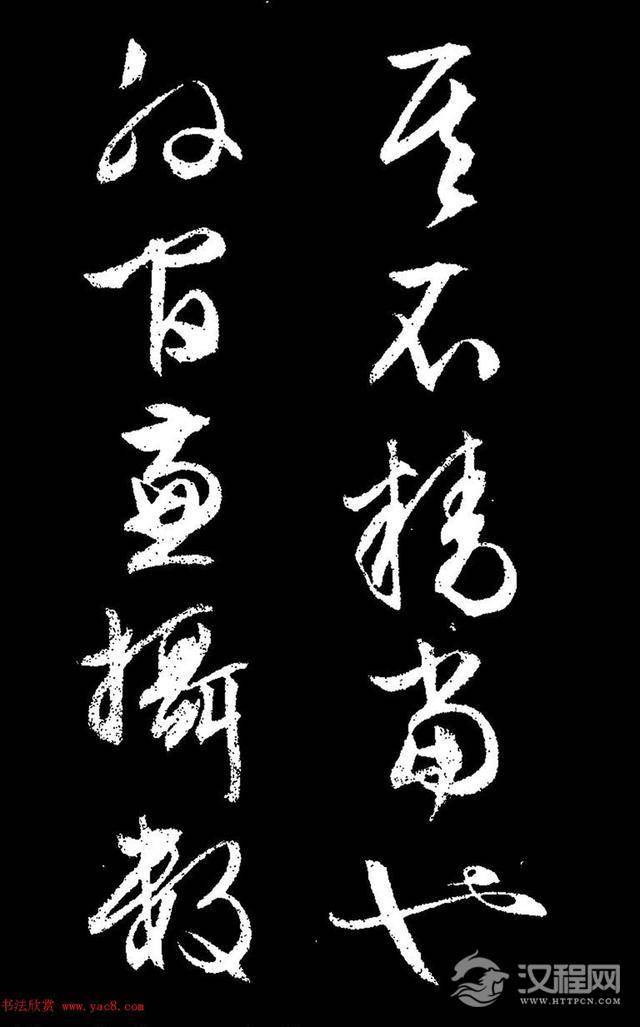 其不精當也
攝數
书法欣赏 www.yac8.com
汉程网
WWW.HTTPCN.COM